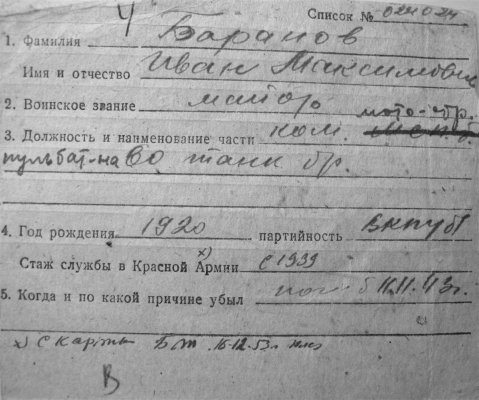 Ч
Список № 024024
1. Фамилия Баранов
Имя и отчество Иван Максимович
2. Воинское звание майор
мото-
3. Должность и наименование части ком.
пульбат-на 60 танк бр.
4. Год рождения 1920 партийность ВКП(б)
х)
Стаж службы в Красной Армии с 1939
5. Когда и по какой причине убыл 11.11.43г.
х) с карты 16.12.53г
В